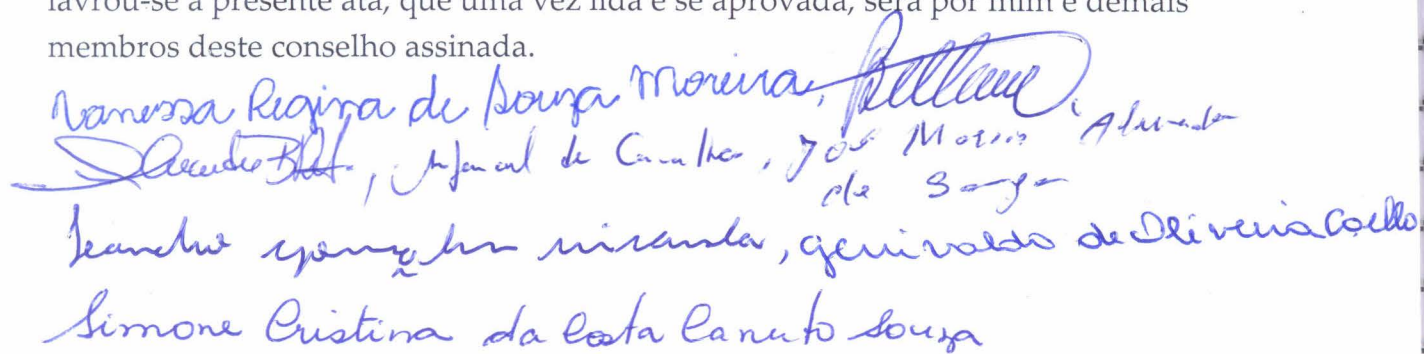 lavrou-se a presente ata, que uma vez lida e se aprovada, será por mim e demais
membros deste conselho assinada.
Vanessa Regina de Souza Moreira,
de Carvalho, José Almeida
de Souza
Leandro miranda, genivaldo de Oliveira Coelho
Simone Cristina da Costa Canuto Souza